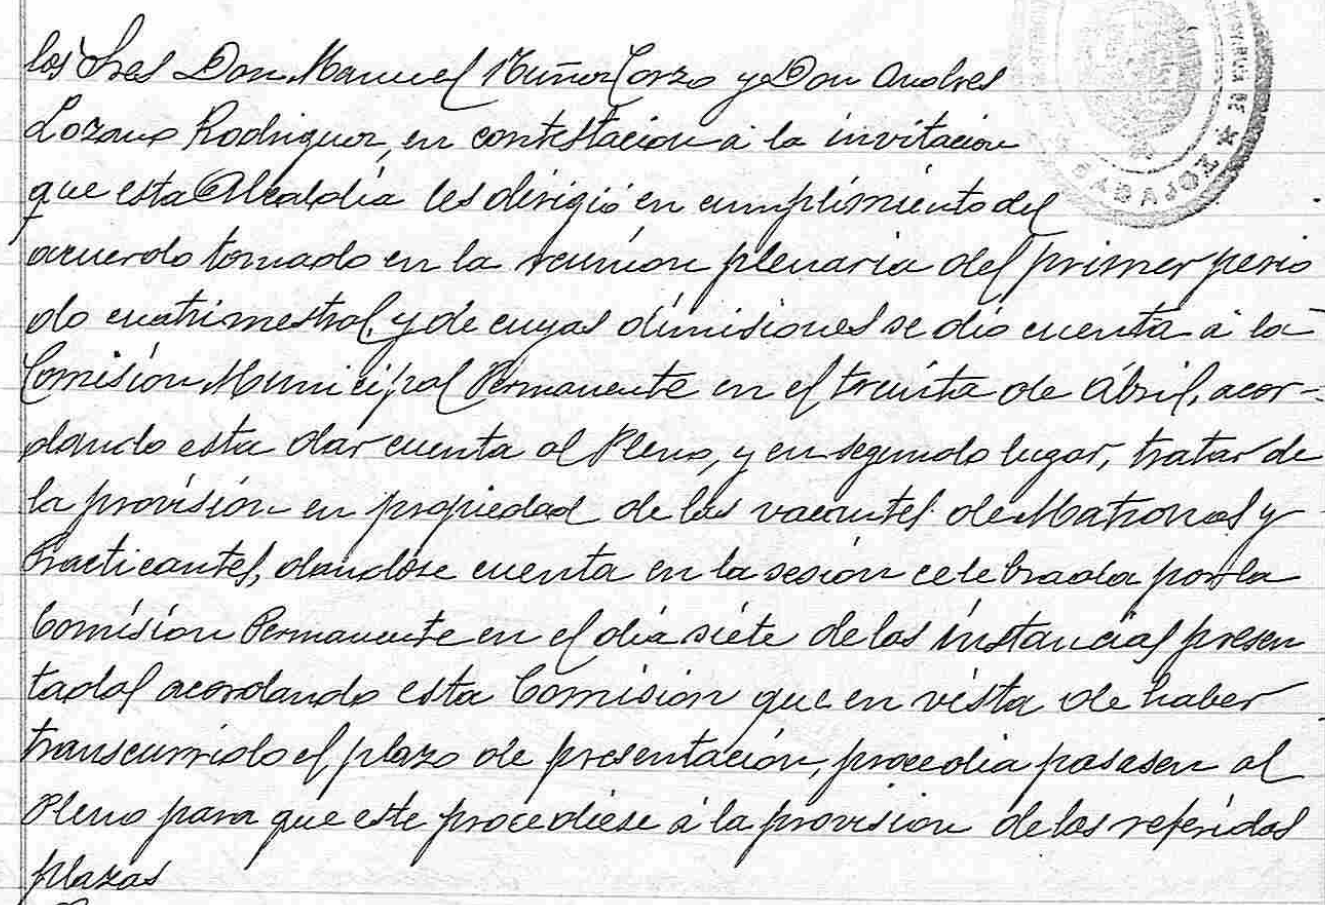 los Sres Don Manuel Muñoz Corzo y Don Andres
Lozano Rodriguez, en contestacion á la invitacion
que esta Alcaldía les dirigió en cumplimiento del
acuerdo tomado en la reunion plenaria del primer perio
do cuatrimestral, y de cuyas dimisiones se dió cuenta á la
Comisión Municipal Permanente en el treinta de Abril, acor-
dando esta dar cuenta al Pleno, y en segundo lugar, tratar de
la provisión en propiedad de las vacantes de Matronas y
Practicantes, dandose cuenta en la sesión celebrada por la
Comisión Permanente en el día siete de las instancias presen
tadas acordando esta Comision que en vista de haber
transcurrido el plazo de presentación, procedia pasasen al
Pleno para que este procediese á la provision de las referidas
plazas
BADAJOZ